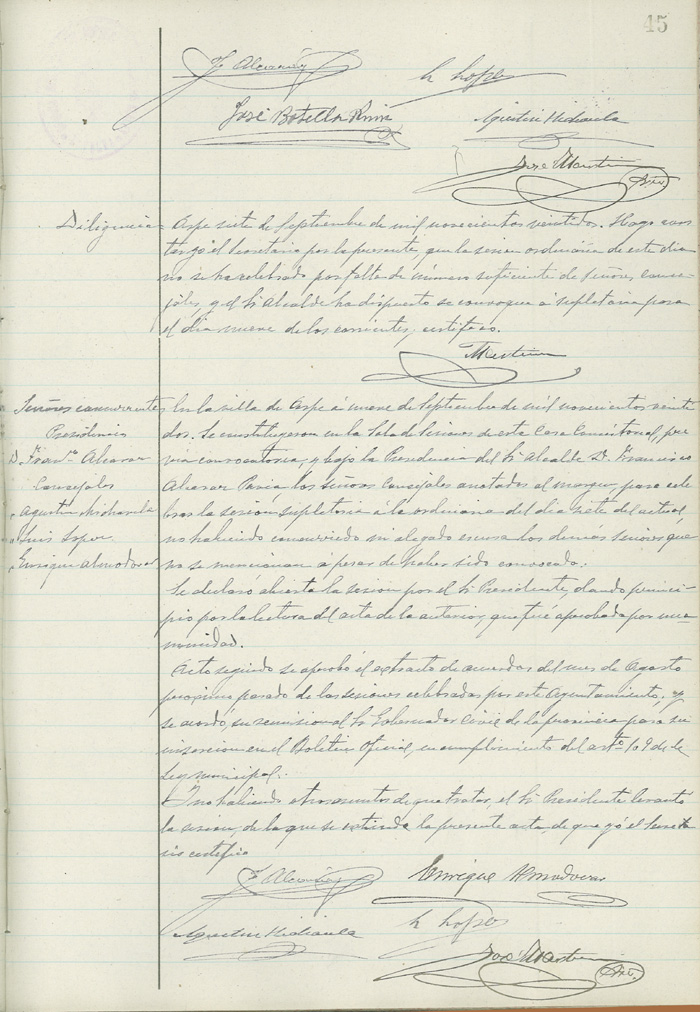 45
F Alcaraz
L López
José Botella Ruiz
Agustín Michavila
José Martin
Srio.
Diligencia = Aspe siete de Septiembre de mil novecientos veintidos. Hago cons-
tar yó el Secretario por la presente, que la sesion ordinaria de este dia
no se ha celebrado por falta de número suficiente de Señores Conce-
jales, y el Sr Alcalde ha dispuesto se convoque á supletoria para
el dia nueve de los corrientes, certifico.
Martin
Señores concurrentes
Presidencia
D. Franco Alcaraz
Concejales
" Agustin Michavila
" Luis Lopez
" Enrique Almodovar
En la villa de Aspe á nueve de Septiembre de mil novecientos veinti
dos. Se constituyeron en la Sala de Sesiones de esta Casa Consistorial, pre
via convocatoria, y bajo la Presidencia del Sr Alcalde D. Francisco
Alcaraz los Señores Concejales anotados al margen, para cele
brar la sesion supletoria á la ordinaria del dia siete del actual,
no habiendo concurrido ni alegado escusa los demás Señores que
no se mencionan á pesar de haber sido convocado.
Se declaró abierta la sesion por el Sr Presidente, dando princi-
pio por la lectura del acta de la anterior, que fué aprobada por una
nimidad.
Acto seguido se aprobó el extracto de acuerdos del mes de Agosto
proximo pasado de las sesiones celebradas por este Ayuntamiento, y
se acordó, su remision al Sr Gobernador Civil de la provincia para su
insercion en el Boletin Oficial, en cumplimiento del arto 109 de la
Ley municipal.
Y no habiendo otros asuntos de que tratar, el Sr Presidente levantó
la sesion, de la que se extiende la presente acta, de que yó el Secreta
rio certifico
F Alcaraz
Enrique Almodovar
Agustín Michavila
L López
José Martin
Srio.